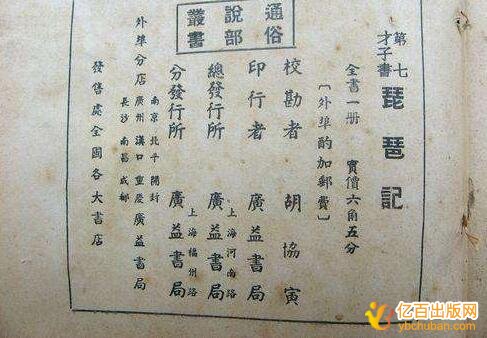 通俗
說部
叢書
第七
才子書
琵琶記
全書一册 實價六角五分
〔外埠酌加郵費〕
校勘者 胡協寅
印行者 廣益書局
上海河南路
總發行所 廣益書局
上海福州路
分發行所 廣益書局
南京 北平 開封
外埠分店 廣州 漢口 重慶 廣益書局
長沙 南昌 成都
發售處全國各大書店
亿百出版网
ybchuban.com